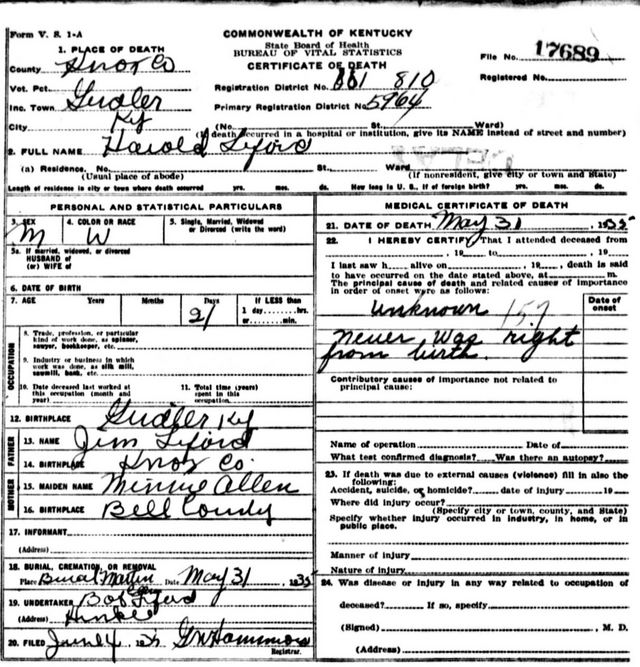 Form V. S. 1-A
COMMONWEALTH OF KENTUCKY
State Board of Health
BUREAU OF VITAL STATISTICS
CERTIFICATE OF DEATH
File No. 17689
Registered No.
1. PLACE OF DEATH
County Knox Co
Vot. Pct.
Inc. Town Girdler
City Ky
Registration District No. 861 810
Primary Registration District No. 5964
(No. St. Ward)
(If death occurred in a hospital or institution, give its NAME instead of street and number)
2. FULL NAME Harold Lyford
(a) Residence. No. St. Ward
(Usual place of abode) (If nonresident, give city or town and State)
Length of residence in city or town where death occurred yrs. mos. ds. How long in U. S., if of foreign birth? yrs. mos. ds.
PERSONAL AND STATISTICAL PARTICULARS
3. SEX M
4. COLOR OR RACE W
5. Single, Married, Widowed or Divorced (write the word)
5a. If married, widowed, or divorced
HUSBAND of
(or) WIFE of
6. DATE OF BIRTH
7. AGE Years Months Days 21
If LESS than
1 day hrs.
or min.
OCCUPATION
8. Trade, profession, or particular kind of work done, as spinner, sawyer, bookkeeper, etc.
9. Industry or business in which work was done, as silk mill, sawmill, bank, etc.
10. Date deceased last worked at this occupation (month and year)
11. Total time (years) spent in this occupation
12. BIRTHPLACE Girdler Ky
FATHER
13. NAME Jim Lyford
14. BIRTHPLACE Knox Co.
MOTHER
15. MAIDEN NAME Minnie Allen
16. BIRTHPLACE Bell County
17. INFORMANT
(Address)
18. BURIAL, CREMATION, OR REMOVAL
Place Burial Date May 31, 1935
19. UNDERTAKER Bob Lyford
(Address) Hinkle
20. FILED June 4 1935 GW Hammons
Registrar.
MEDICAL CERTIFICATE OF DEATH
21. DATE OF DEATH May 31, 1935
22. I HEREBY CERTIFY That I attended deceased from
, 19 to , 19
I last saw h alive on , 19 , death is said
to have occurred on the date stated above, at m.
The principal cause of death and related causes of importance
in order of onset were as follows:
Date of onset
unknown 157
never was right
from birth.
Contributory causes of importance not related to
principal cause:
Name of operation Date of
What test confirmed diagnosis? Was there an autopsy?
23. If death was due to external causes (violence) fill in also the
following:
Accident, suicide, or homicide? date of injury 19
Where did injury occur?
(Specify city or town, county, and State)
Specify whether injury occurred in industry, in home, or in
public place.
Manner of injury
Nature of injury
24. Was disease or injury in any way related to occupation of
deceased? If so, specify
(Signed) , M. D.
(Address)